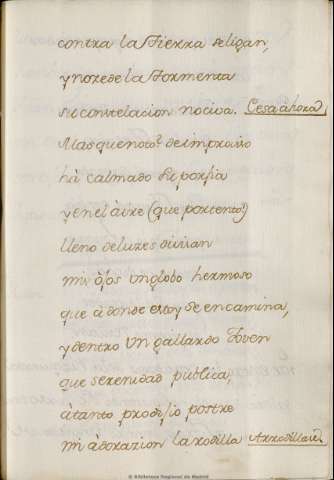 contra la tierra se ligan,
y no cede la tormenta
su constelacion nociva. Cesa àhora
Mas que noto! de improviso
hà calmado su porfia
y en el àire (que portento!)
lleno de luzes divisan
mis òjos un globo hermoso
que à donde estoy se encamina,
y dentro un gallardo Joven
que serenidad publica,
à tanto prodijio postre
mi àdorazion la rodilla Arrodillase
© Biblioteca Regional de Madrid